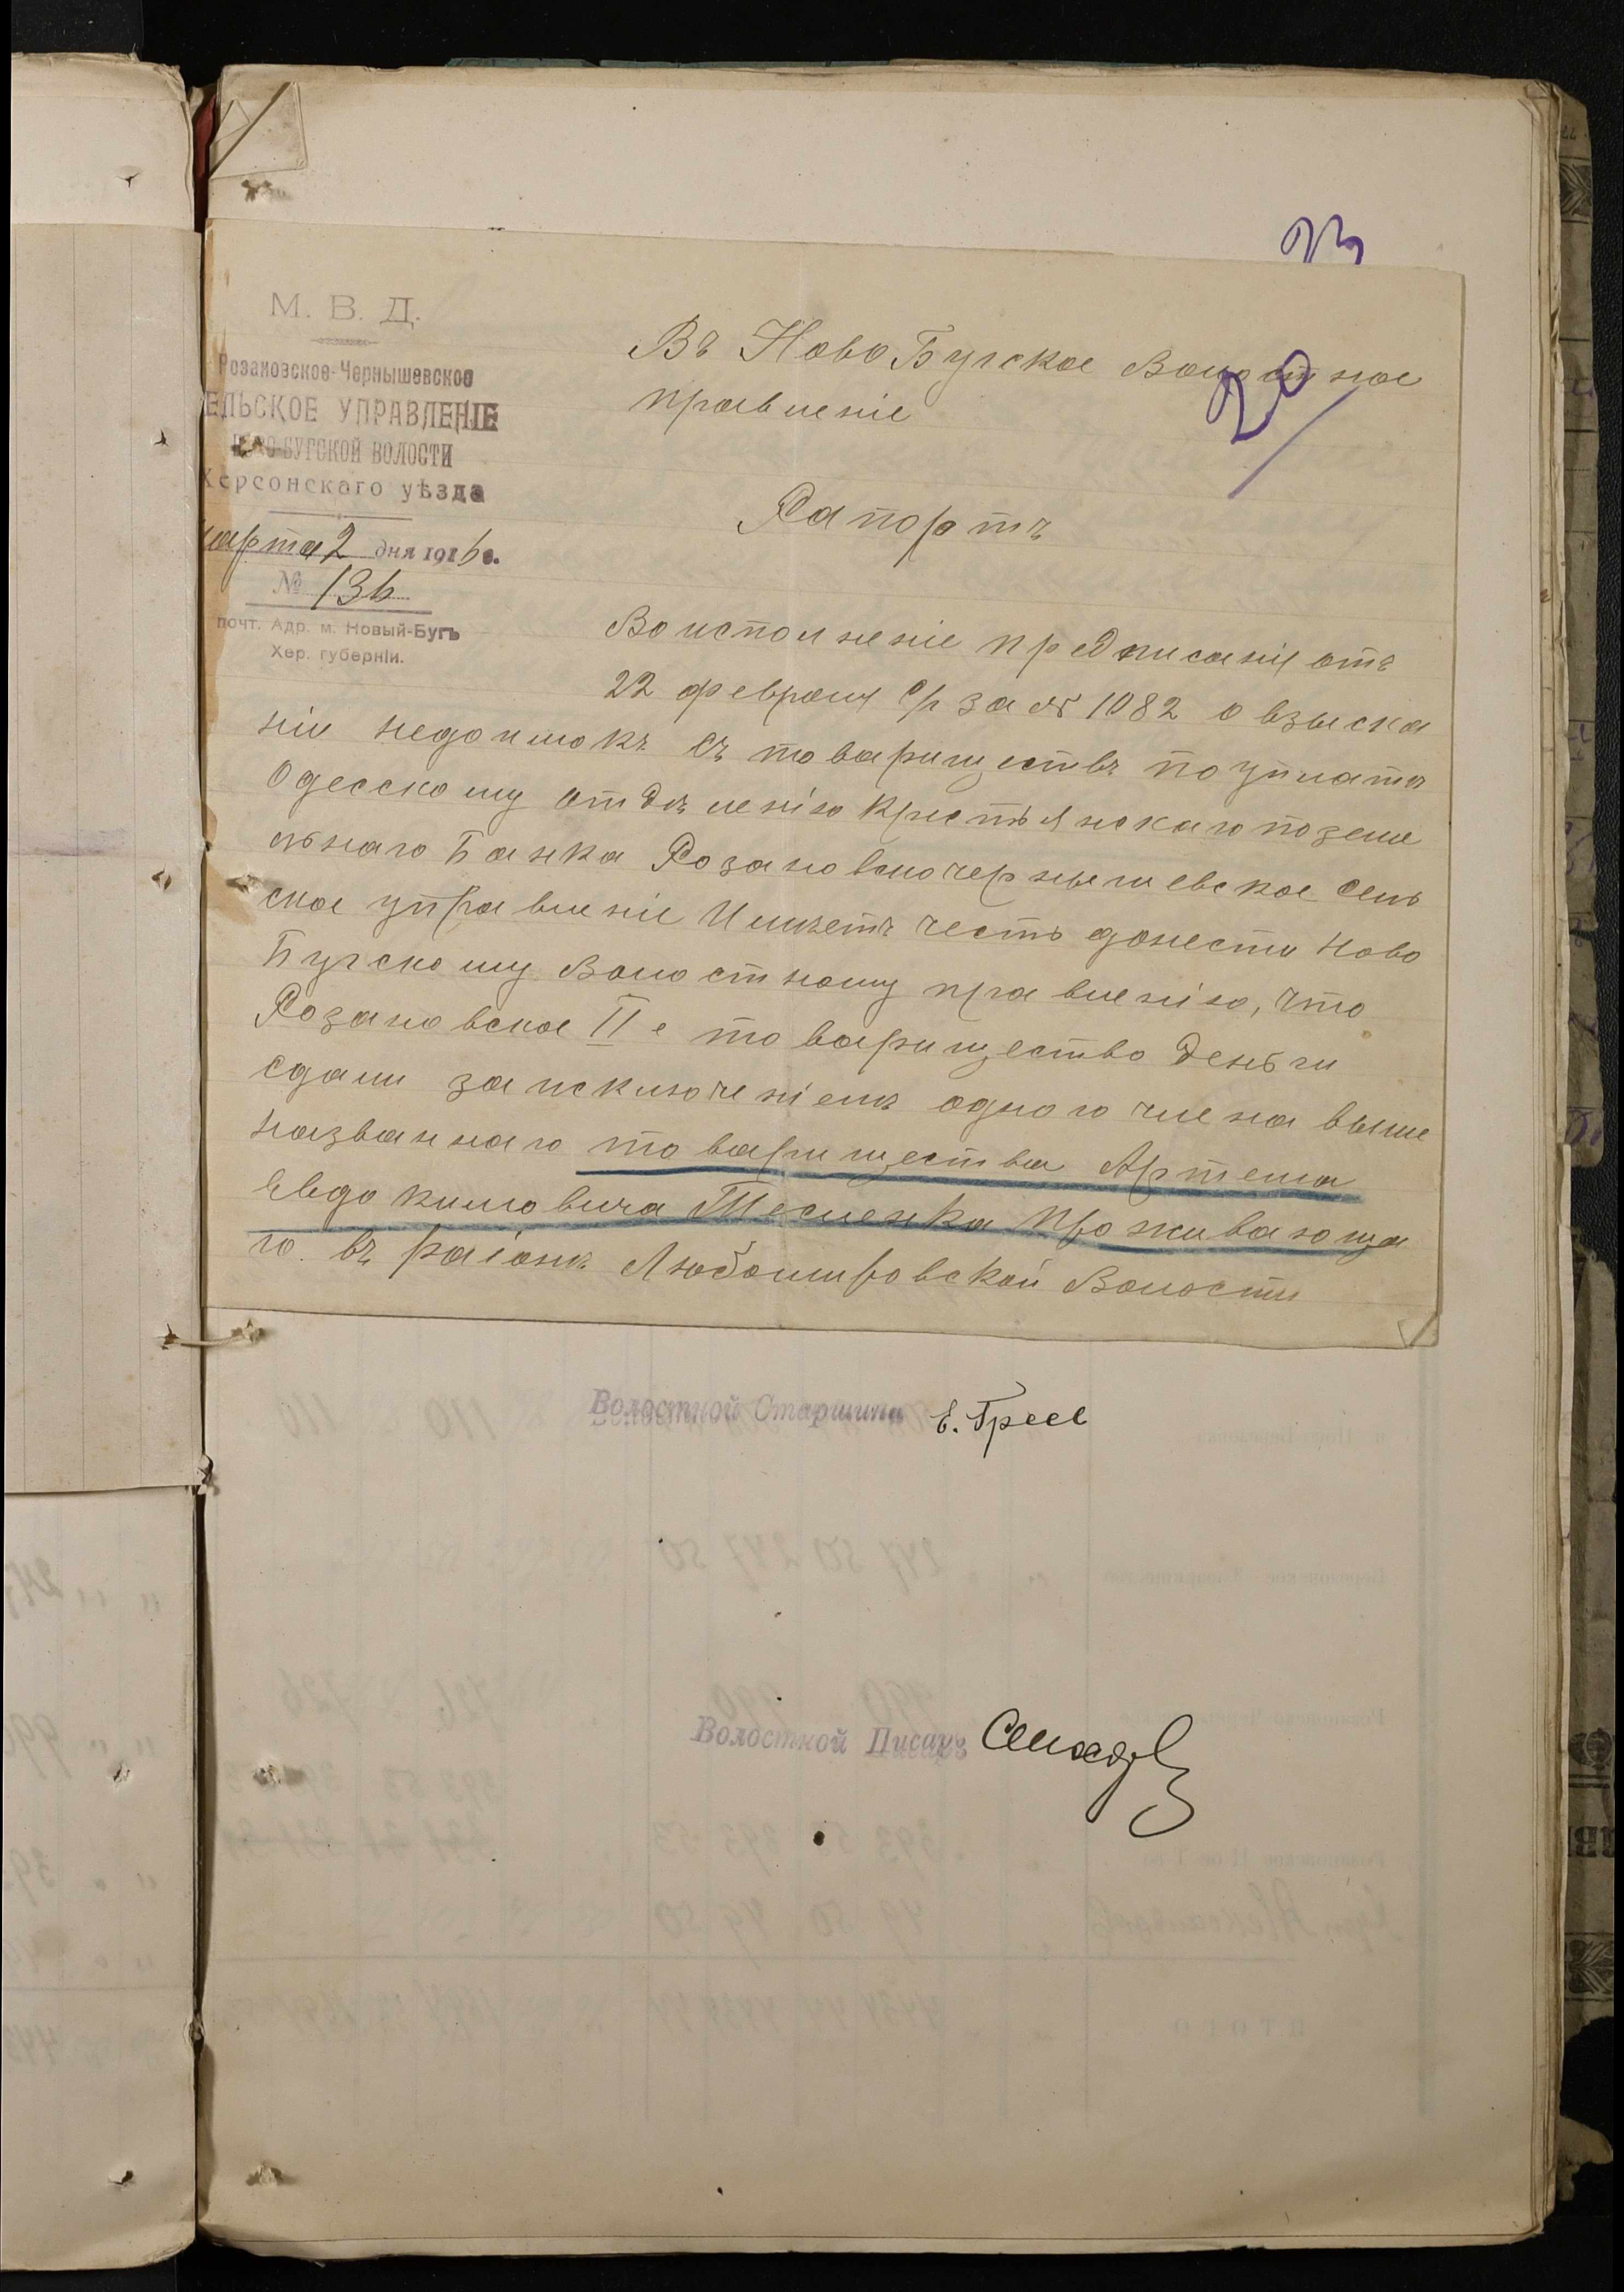 33
20
М. В. Д.
Розановское-Чернышевское
ЕЛЬСКОЕ УПРАВЛЕНІЕ
НОВО-БУГСКОЙ ВОЛОСТИ
Херсонскаго уѣзда
марта 2 дня 1916 г.
№ 136
почт. Адр. м. Новый-Бугъ
Хер. губерніи.
Въ Ново Бугское Волостное
правленіе
Рапортъ
Во исполненіе предписанія отъ
22 февраля с/г за № 1082 о взыска
ніи недоимокъ съ товариществъ по уплатѣ
Одесскому отдѣленію Крестьянскаго поземе
льнаго Банка Розановскочернышевское Сель
ское управленіе Имѣетъ честь донести Ново
Бугскому Волостному правленію, что
Розановское II е товарищество деньги
сдали за исключеніемъ одного члена выше
названнаго товарищества Артема
Евдокимовича Тесленка проживающа
го въ районѣ Любомировской Волости
Волостной Старшина Е. Греев
Волостной Писарь